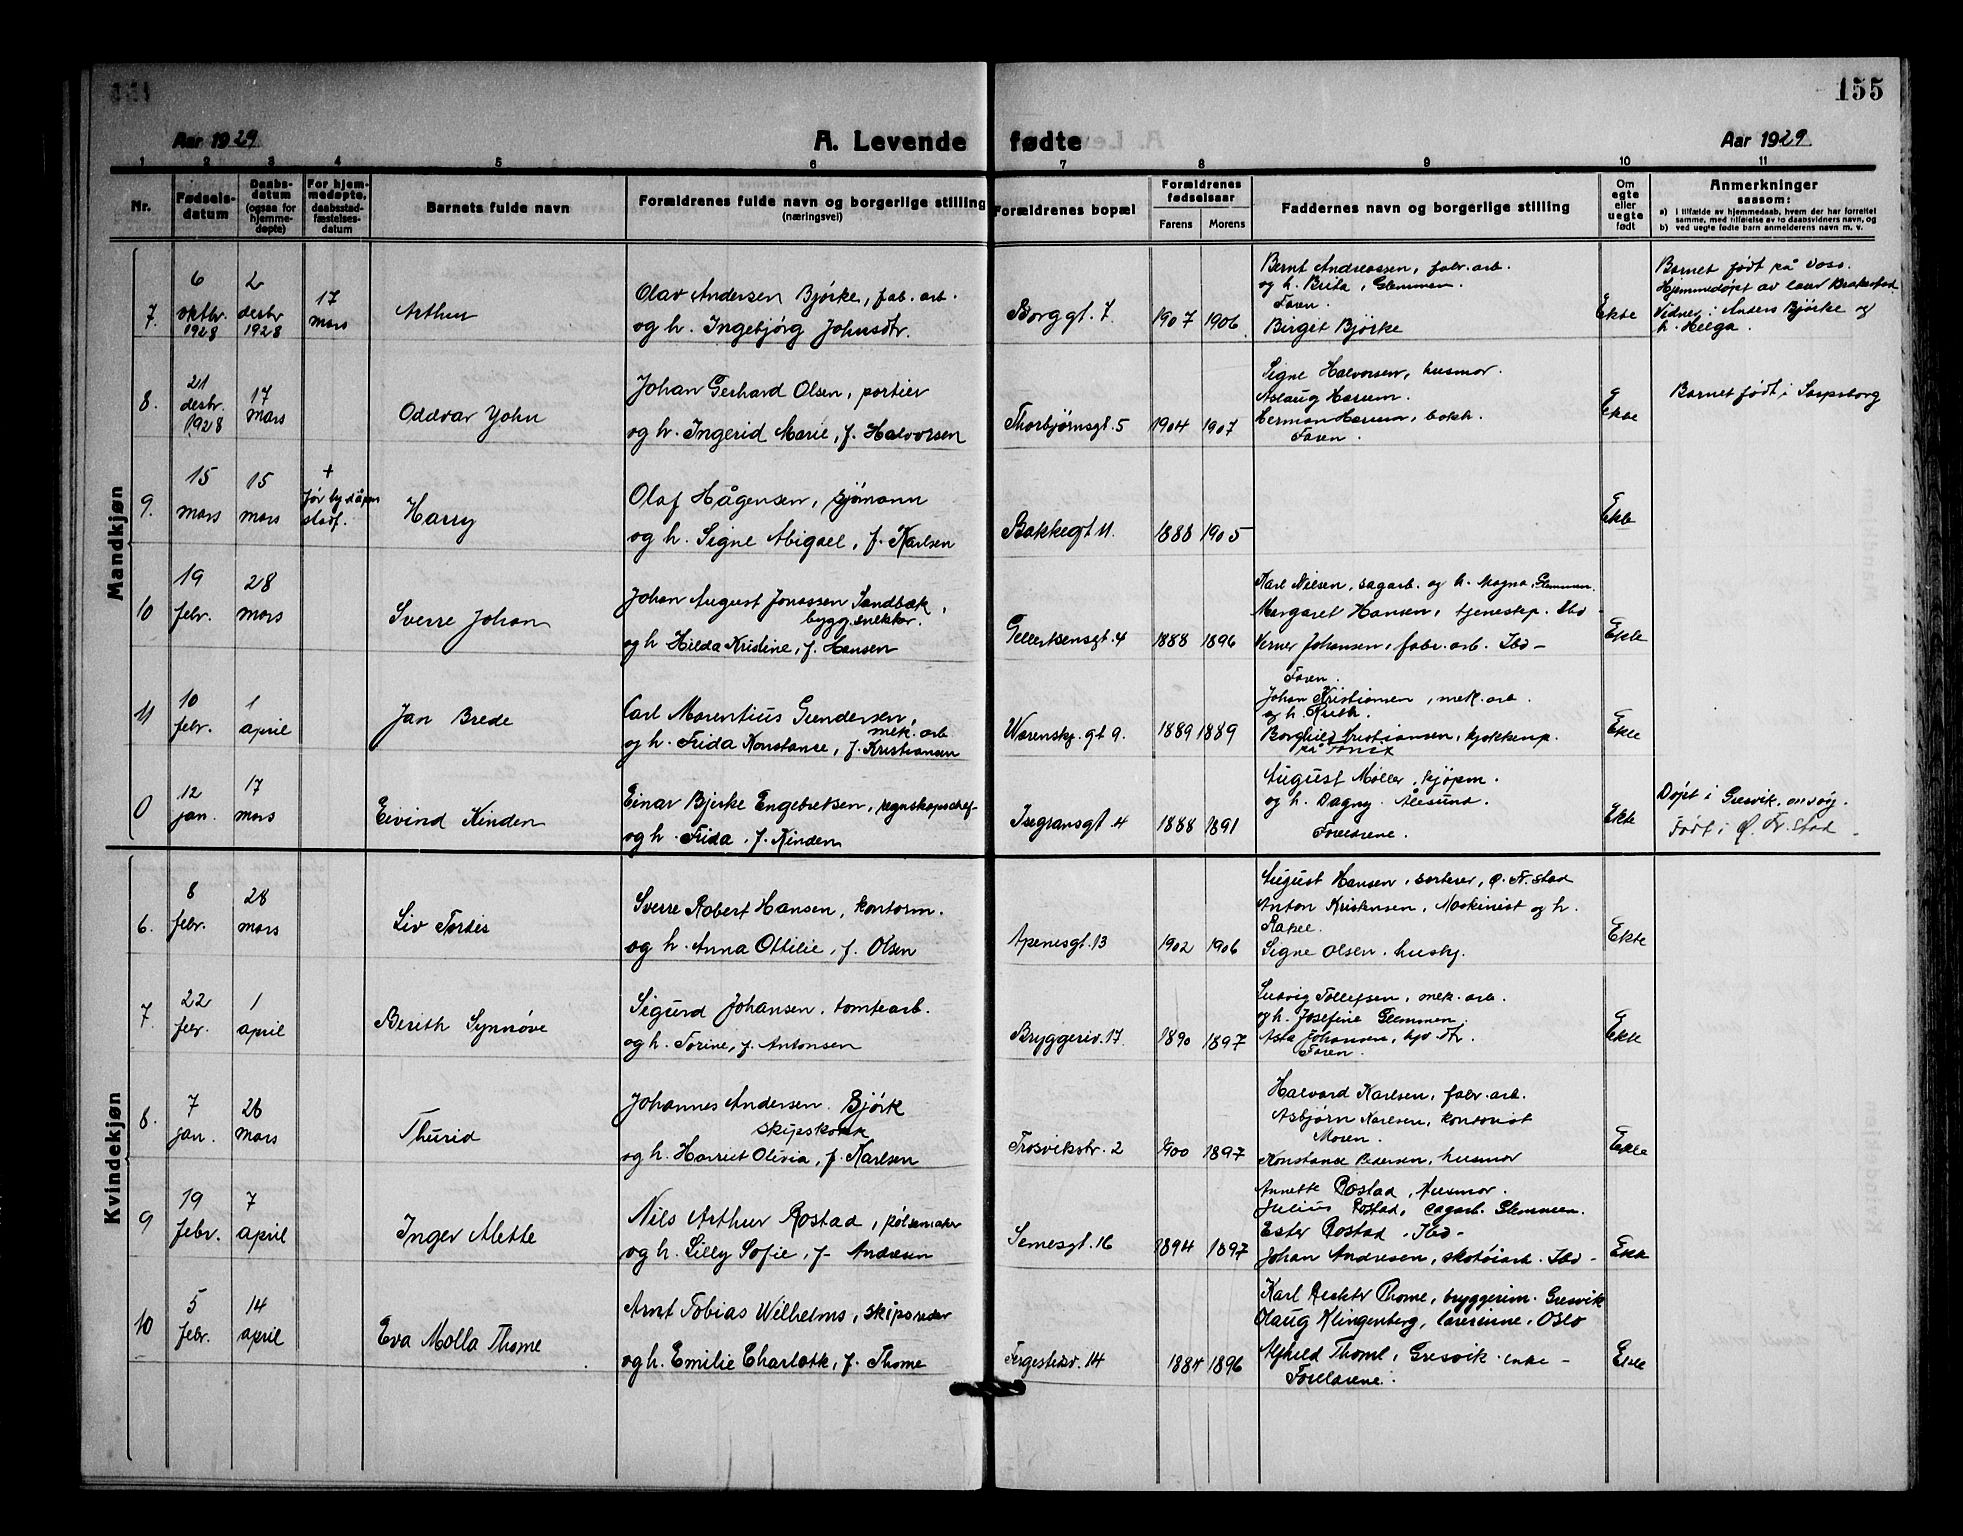 155
Aar 1929
A. Levende fødte
Aar 1929
1 2 3 4 5 6 7 8 9 10 11
Nr.
Fødsels-
datum
Daabs-
datum
(ogsaa for
hjemme-
døpte)
For hjem-
medøpte,
daabsstad-
fæstelses-
datum
Barnets fulde navn
Forældrenes fulde navn og borgerlige stilling
(næringsvei)
Forældrenes bopæl
Forældrenes
fødselsaar
Farens Morens
Faddernes navn og borgerlige stilling
Om
egte
eller
uegte
født
Anmerkninger
saasom:
a) i tilfælde av hjemmedaab, hvem der har forrettet
samme, med tilføielse av to daabsvidners navn, og
b) ved uegte fødte barn anmelderens navn m. v.
Mandkjøn
7.
6
oktbr.
1928
2
desbr
1928
17
mars
Arthur
Olav Andersen Bjørke, fab. arb.
og h. Ingebjörg Johnsdtr.
Borggt. 7.
1907 1906.
Bernt Andreassen, fabr. arb.
og h. Brita, Glemmen.
Faren.
Birgit Bjørke
Ekte
Barnet født på Voss.
Hjemmedøpt av lærer
Vidner: Anders Bjørke og
h. Helga.
8.
21
desbr.
1928
17
mars
Oddvar John
Johan Gerhard Olsen, portier
og h. Ingerid Marie, f. Halvorsen
Thorbjørnsgt. 5
1904 1907
Signe Halvorsen, husmor.
Aslaug Harum.
Herman Harum, bokh.
Faren.
Ekte
Barnet født i Sarpsborg
9.
15
mars
15
mars
+
før
stadf.
Harry
Olaf Hågensen, sjømann
og h. Signe Abigael, f. Karlsen
Bakkegt 11.
1888 1905
Ekte
10
19
febr.
28
mars
Sverre Johan
Johan August Jonassen Sandbæk,
bygg.snekker.
og h Hilda Kristine, f. Hansen
Gellertsensgt. 4
1888 1896
Karl Nilsen, sagarb. og h. Magna, Glemmen.
Margaret Hansen, tjenestep. Ibd -
Verner Johansen, fabr. arb. Ibd -
Faren.
Ekte
11
10
febr.
1
april
Jan Brede
Carl Marentius Gundersen,
mek. arb
og h. Frida Konstanse, f. Kristiansen
Warenskj. gt 9.
1889 1889
Johan Kristiansen, mek. arb.
og h.
Borghild Kristiansen, kjøkkenp.
på
Ekte
0
12
jan.
17
mars
Eivind Kinden
Einar Bjerke Engebretsen, regnskapschef
og h. Frida, f. Kinden
Isegransgt. 4
1888 1891
August Møller, kjøpm.
og h. Dagny. Ålesund.
Foreldrene.
Ekte
Døpt i Gresvik, Onsøy.
Født i Ø. Fr.stad -
Kvindekjøn
6.
8
febr.
28
mars
Liv Tordis
Sverre Robert Hansen, kontorm.
og h. Anna Ottilie, f. Olsen
Apenesgt. 13
1902 1906
August Hansen, sorterer, Ø. Fr. stad
Anton Kristensen, Maskinist og h.
Rakel.
Signe Olsen, hushj.
Ekte
7.
22
febr.
1
april
Berith Synnöve
Sigurd Johansen, tomtearb.
og h. Torine, f. Antonsen
Bryggeriv. 17.
1890 1897
Ludvig Tollefsen, mek. arb.
og h. Josefine Glemmen.
Asta Johansen, hjv. dtr.
Faren.
Ekte
8.
7
jan.
26
mars
Thurid
Johannes Andersen Bjórk
skipskokk
og h. Harriet Olivia, f. Karlsen
Trosvikstr. 2
1900 1897
Halvard Karlsen, fabr. arb.
Asbjørn Karlsen, kontorist
Moren.
Konstanse Pedersen, husmor
Ekte
9
19
febr.
7
april
Inger Mette
Nils Arthur Rostad, pølsemaker
og h. Lilly Sofie, f. Andresen
Semesgt. 16
1894 1897
Annette Rostad, Husmor.
Julius Rostad, sagarb. Glemmen.
Ester Rostad. Ibd -
Johan Andresen, skotøiarb. Ibd -
Ekte
10
5
febr.
14
april
Eva Molla Thome
Arnt Tobias Wilhelms, skipsreder
og h. Emilie Charlotte, f. Thome
Fergestedsv. 14
1884 1896
Karl Thome, bryggerim. Gresvik
Olaug Klingenberg, lærerinne, Oslo
Alfhild Thome, Gresvik. enke -
Foreldrene.
Ekte